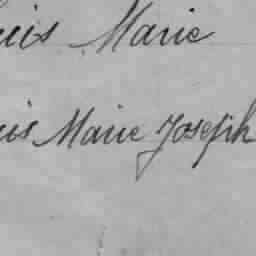 uis Marie
uis Marie Joseph